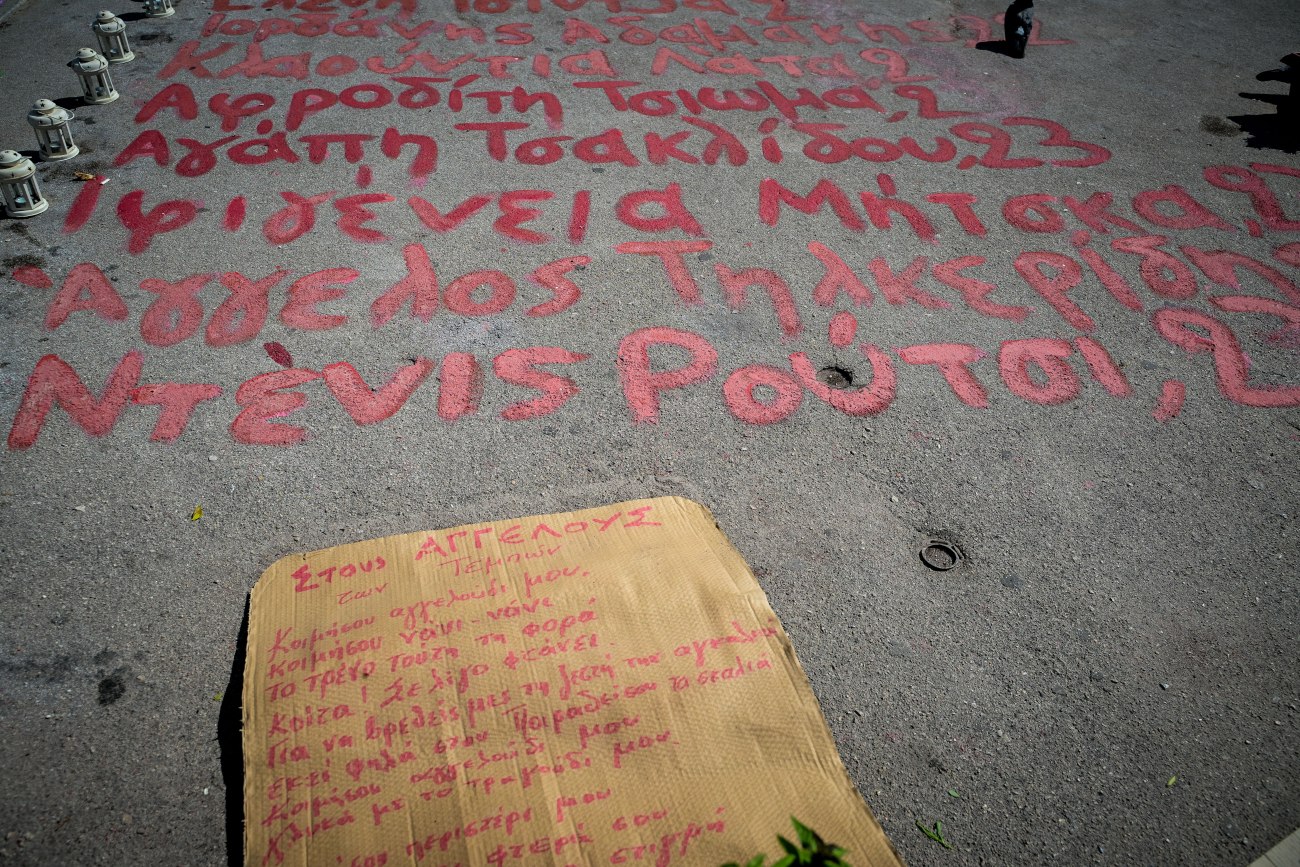 Ιορδάνης Αδαμάκης 22
Κλαούντια Λάτα 2
Αφροδίτη Τσιωμά, 2
Αγάπη Τσακλίδου, 23
Ιφιγένεια Μήτσκα, 2
Άγγελος Τηλκερίδης
Ντένις Ρούτσι, 2
Στους ΑΓΓΕΛΟΥΣ
των Τεμπών
Κοιμήσου αγγελούδι μου,
Κοιμήσου νάνι-νάνι
το τρένο τούτη τη φορά
Κοίτα! Σε λίγο φτάνει.
Για να βρεθείς μες τη ζεστή της αγκαλιά
εκεί ψηλά στου Παραδείσου τα σκαλιά
Κοιμήσου αγγελούδι μου
γλυκά με το τραγούδι μου.
περιστέρι μου
φτερά σου
στιγμή